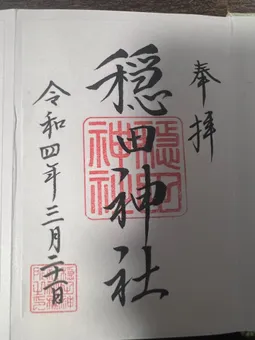 奉拝
穏田神社
穏田
神社
令和四年三月二十一日